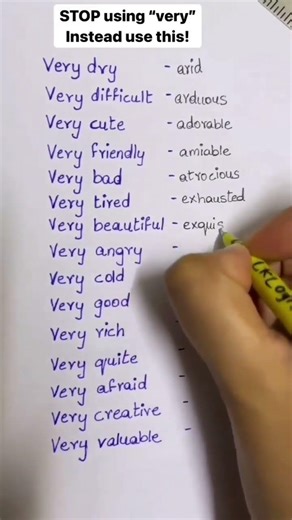 STOP using “very”
Instead use this!
Very dry - arid
Very difficult - arduous
Very cute - adorable
Very friendly - amiable
Very bad - atrocious
Very tired - exhausted
Very beautiful - exquis
Very angry -
Very cold
Very good
Very rich
Very quite -
Very afraid -
Very creative -
Very valuable -